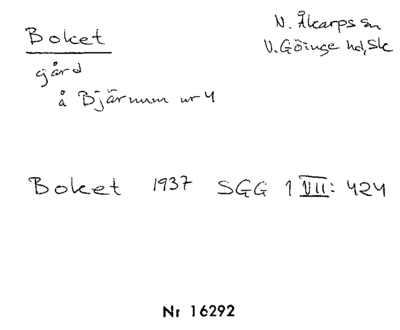 Boket
N. Åkarps sn
V. Göinge hd, Sk
gård
å Bjärnum nr 4
Boket 1937 SGG 1 VII: 424
Nr 16292